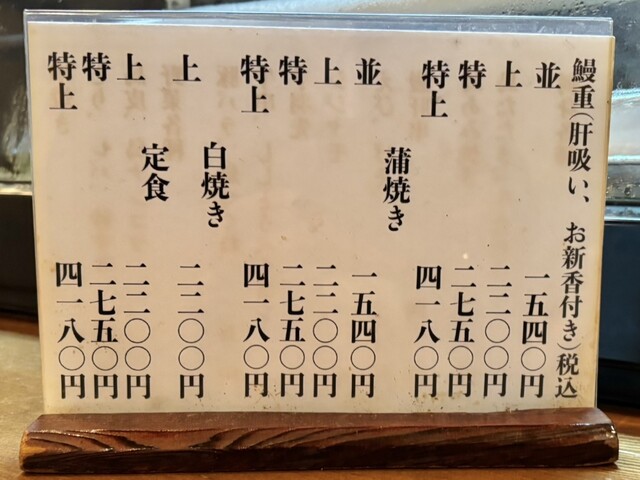 鰻重（肝吸い、お新香付き）税込
並 一五四〇円
上 二二〇〇円
特 二七五〇円
特上 四一八〇円
蒲焼き
並 一五四〇円
上 二二〇〇円
特 二七五〇円
特上 四一八〇円
白焼き
上 二二〇〇円
定食
上 二二〇〇円
特 二七五〇円
特上 四一八〇円